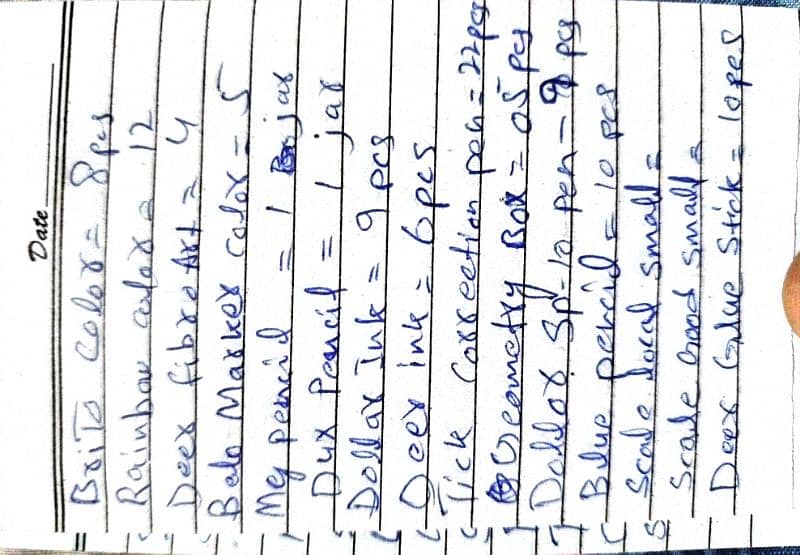 Date
BriTo Color = 8 pcs
Rainbow color = 12
Deer fibro Art = 4
Belo Marker Color = 5
My pencil = 1 jar
Dux Pencil = 1 jar
Dollar Ink = 9 pcs
Deer ink = 6 pcs
Tick Correction pen = 22 pcs
Geometry Box = 05 pcs
Dollar Sp-10 pen - 9 pcs
Blue pencil = 10 pcs
Scale local small =
Scale Good small =
Deer Glue Stick = 10 pcs